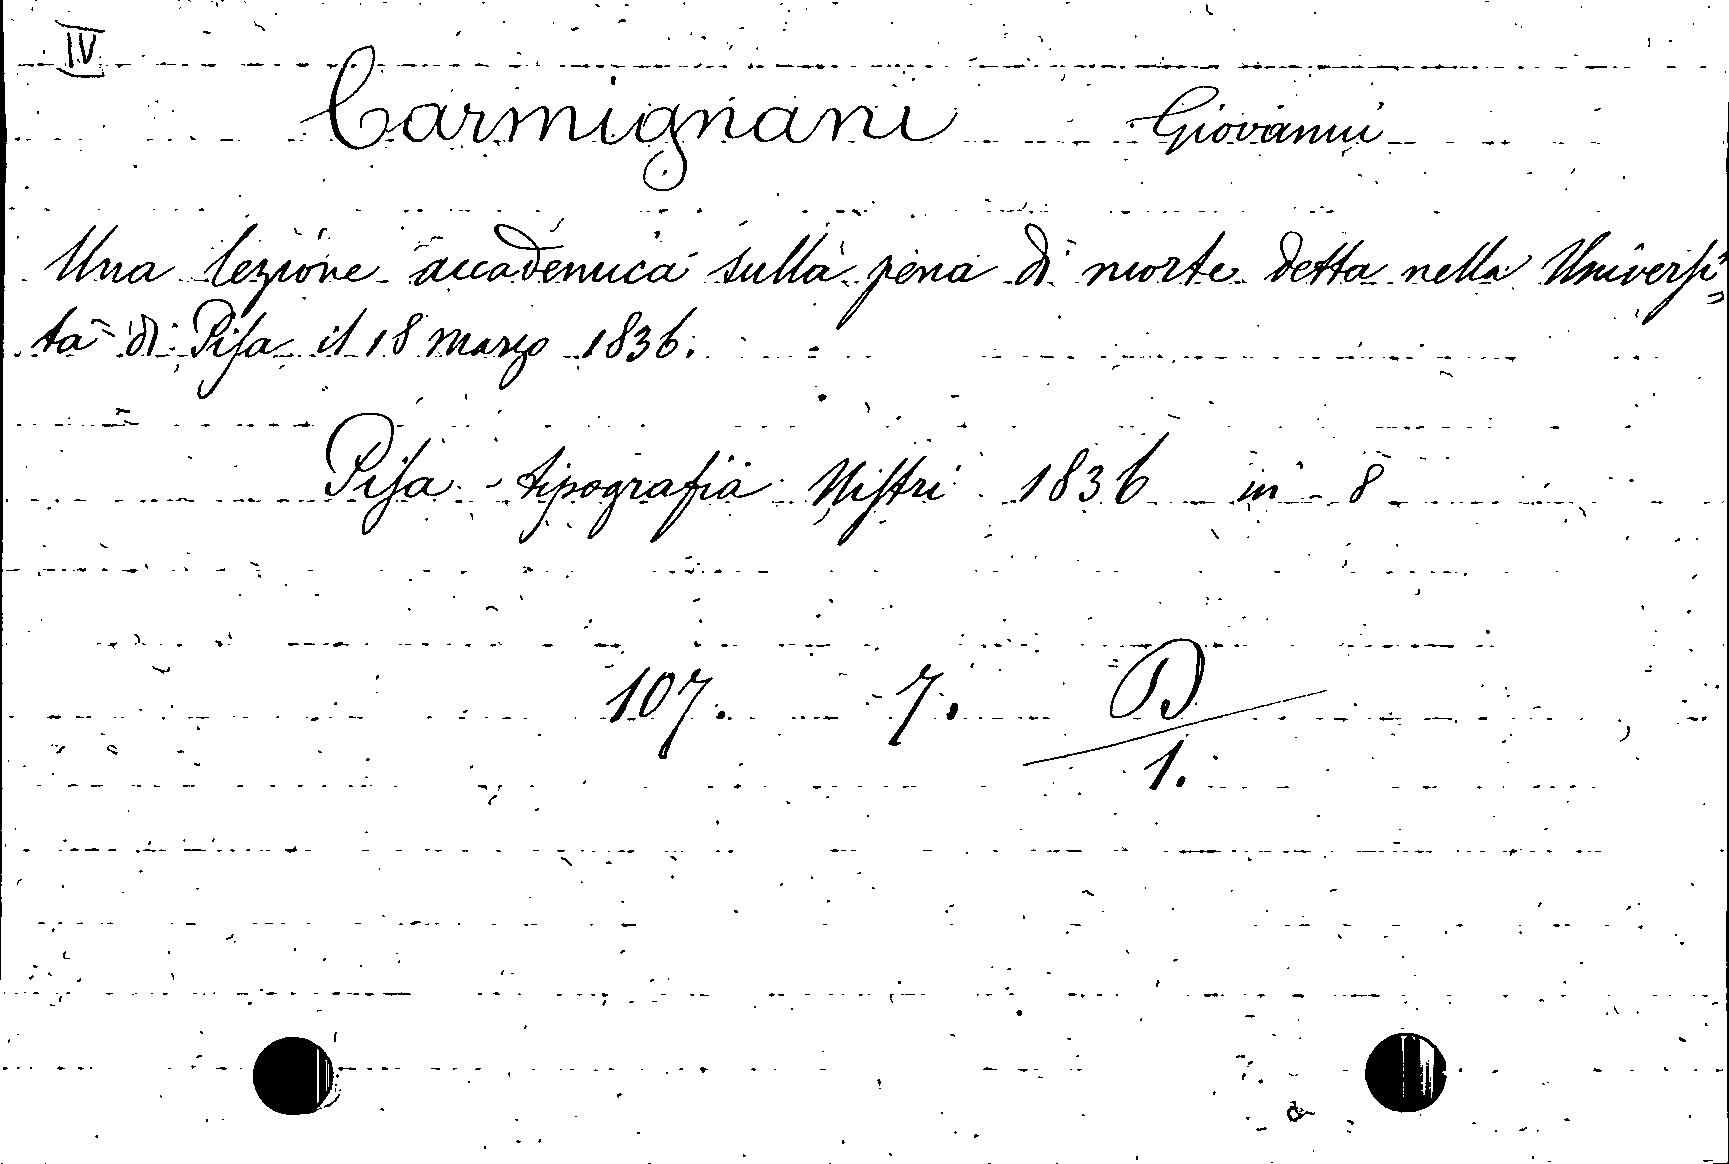 IV
Carmignani Giovanni
Una lezione accademica sulla pena di morte detta nella Universi=
tà di Pisa il 18 marzo 1836.
Pisa - tipografia Nistri 1836 in 8
107. 7. D
1.